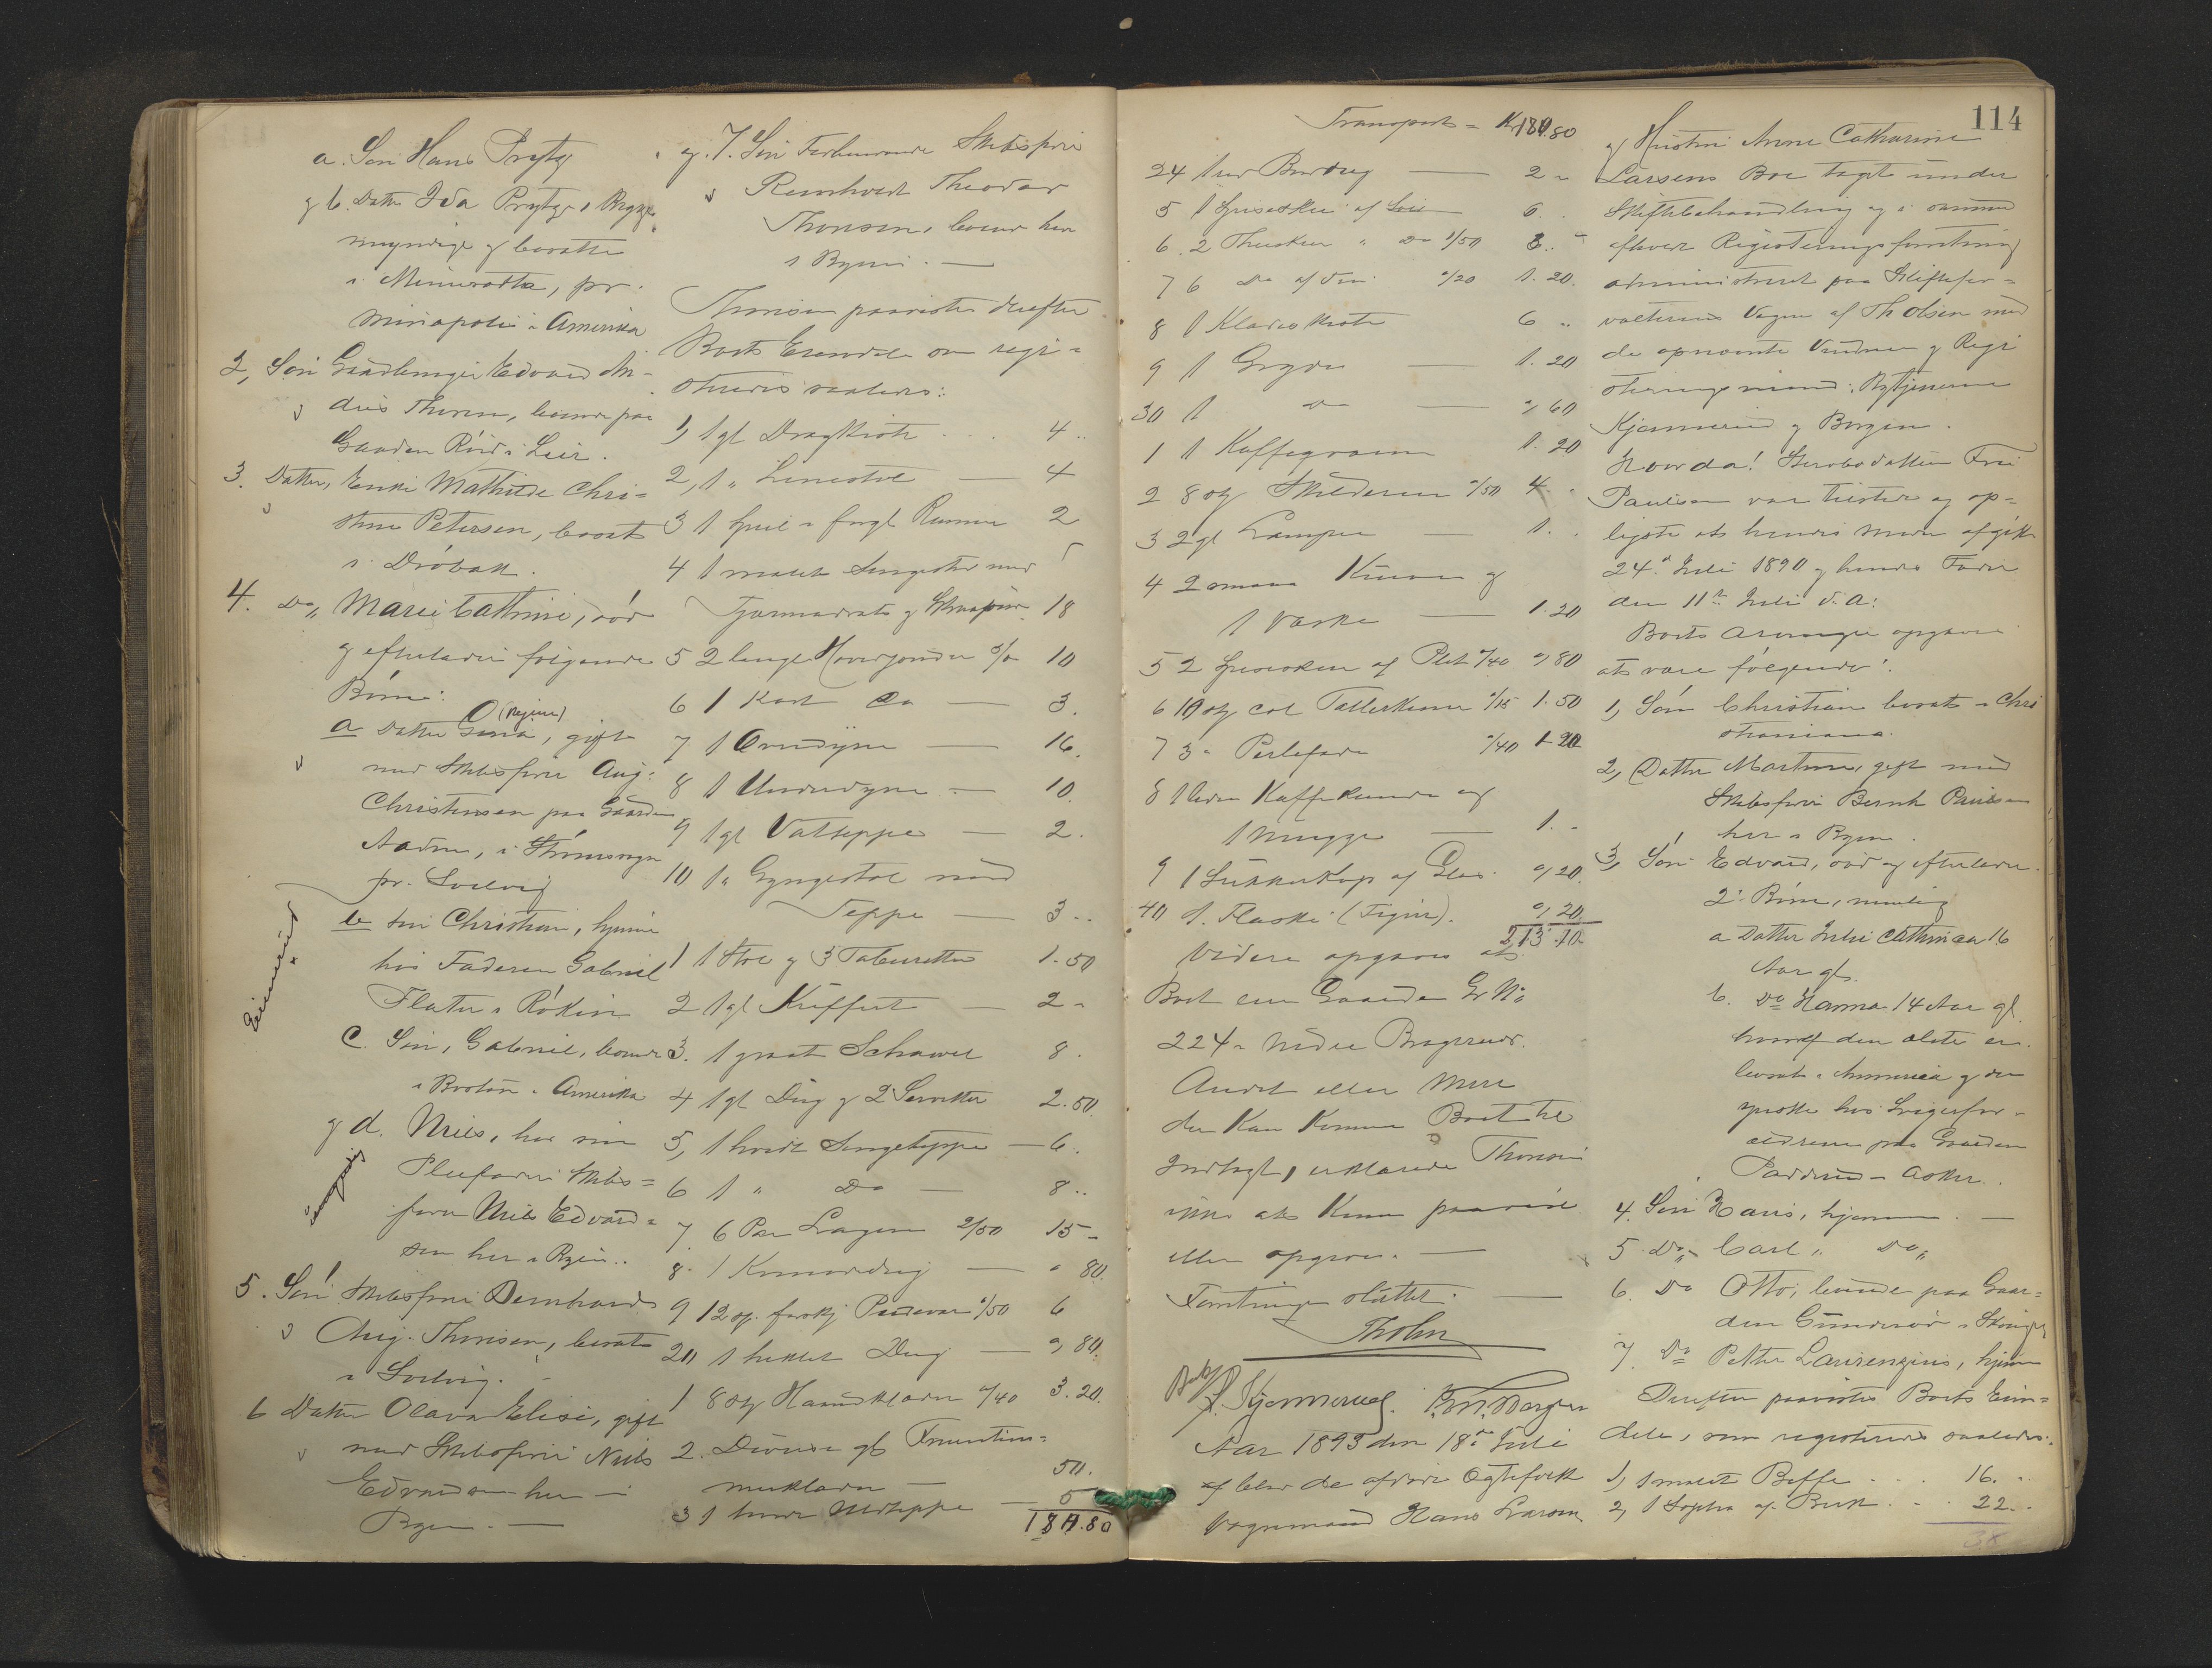 a. Søn Hans Prytz
og b. Datter Ida Prytz, begge
myndige og bosatte
i Minnesotta, pr.
Minapolis i Amerika
2, Søn Gaardbruger Edvard An-
dreas Thoresen, boende paa
Gaarden Röd i Lier.
3. Datter, Enke Mathilde Chri-
stine Petersen, bosat
i Dröbak.
4. Do„ Marie Cathrine, död
og efterladt følgende
Börn:
a Datter Gina (Regine), gift
med Skibsfører Aug.
Christensen paa Gaarden
i Strömmen
pr. Svelvig
b Søn Christian, hjemme
hos Faderen Gabriel
i Röken
c. Søn, Gabriel, boende
i Boston i Amerika
og d. Niels, hos sin
Pleiefader Skibs=
fører Niels Edvard=
sen her i Byen..
5. Søn Skibsfører Bernhard
Aug. Thoresen, bosat
i Svelvig.
6 Datter Olava Elise, gift
med Skibsfører Niels
Edvardsen her i
Byen. —
og 7. Søn Skibsfører
Reinhardt Theodor
Thoresen, boende her
i Byen. —
Thoresen paaviste derefter
Boets Eiendele som regi=
streredes saaledes:
1, 1 gl Dragkiste . . . 4 ..
2, 1 „ Lænestol — 4
3 1 Speil i forgl Ramme 2
4 1 malet Sengested med
18
5 2 lange Hovedpuder 5/a 10
6 1 kort Do — 3.
7 1 Overdyne — 16.
8 1 Underdyne — 10
9 1 gl Vatteppe — 2.
10 1 „ Gyngestol med
Teppe — 3 ..
1 1 Stol og 3 Tabouretter 1.50
2 1 gl Kuffert — 2 -
3. 1 graat Schawl 8.
4 1 gl Dug og 2 Servietter 2.50.
5, 1 hvidt Sengeteppe — 6.
6 1 „ Do — 8 ..
7 6 Par Lagen 2/50 15 -
8. 1 — 80.
9 12 st. forskj Pudevar a/50 6
20 1 heklet Dug — a, 80.
1 8 st Haandklæder a/40 3.20.
2. Diverse gl Fruentim=
merklæder — 50.
3 1 — 5
184.80
Eiermænd
114
Transport = Kr 184.80
24 1 — 2 -
5 1 Spiseskee af — 6.
6. 2 Theskeer „ Do 1/50 3. -
7 6 Do af Tin a/20 1.20.
8 1 Klædeskiste 6 ..
9 1 Gryde — 1.20
30 1 Do — a, 60
1 1 Kaffe 1.20
2 8 st Skilderier a/50 4 .
3 2 gl Lamper — 1.
4 2 smaa Kurve og
1 Væske — 1.20
5 2 Spiseskeer af Plet a/40 a, 80
6 10 st col Tallerkener a/15 1.50
7 3 „ Perlefade a/40 1.20
8 1 Kaffekande og
1 Mugge — 1. -
9 1 Sukkerkop af Glas a, 20.
40 1. Flaske a, 20.
213.10
Videre opgaves at
Boet eier Gaarden Gr No
224 i Nedre Bragernes.
Andet eller Mere
der kan komme Boet til
Indtægt, erklærede Thoresen
ikke at kunne paavise
eller opgive. —
Forretningen sluttet. —
Th Olsen
A. Kjønnerud.
Aar 1893 den 18de Juli
blev de afdøde Ægtefolk
Vognmand Hans Larsen
og Hustru Anne Catharine
Larsens Boe tagt under
Skiftebehandling og i samme
afholdt Registreringsforretning
administreret paa Skiftefor=
valterens Vegne af Th Olsen med
de opnævnte Vidner og Regi
streringsmænd: Bytjenerne
Kjønnerud og Borgen.
Hvorda! Sterbodatteren Fru
Paulsen var tilstede og op=
lyste at hendes Moder afgik
24de Juli 1890 og hendes Fader
den 11te Juli d. A:
Boets Arvinger opgaves
at være følgende:
1, Søn Christian bosat i Chri
stiania.
2, Datter Martine, gift med
Skibsfører Bernh Paulsen
her i Byen.
3, Søn Edvard, død og efterladt
2 Börn, nemlig
a Datter Julie Cathrine 16
Aar gl.
b. Do Hanna 14 Aar gl.
hvoraf den ældste er
bosat i Amerika og den
yngste hos Svigerfor-
ældrene paa Gaarden
i Asker.
4. Søn Hans, hjemme. —
5 Do„ Carl „ Do„
6. Do Otto, boende paa Gaar=
den i Skouger
7. Do Petter Laurenzius, hjemme
Derefter paavistes Boets Eien=
dele, som registreredes saaledes:
1, 1 malet Boffe . . . 16. ..
2, 1 Sopha af Birk . . . 22 ..
38